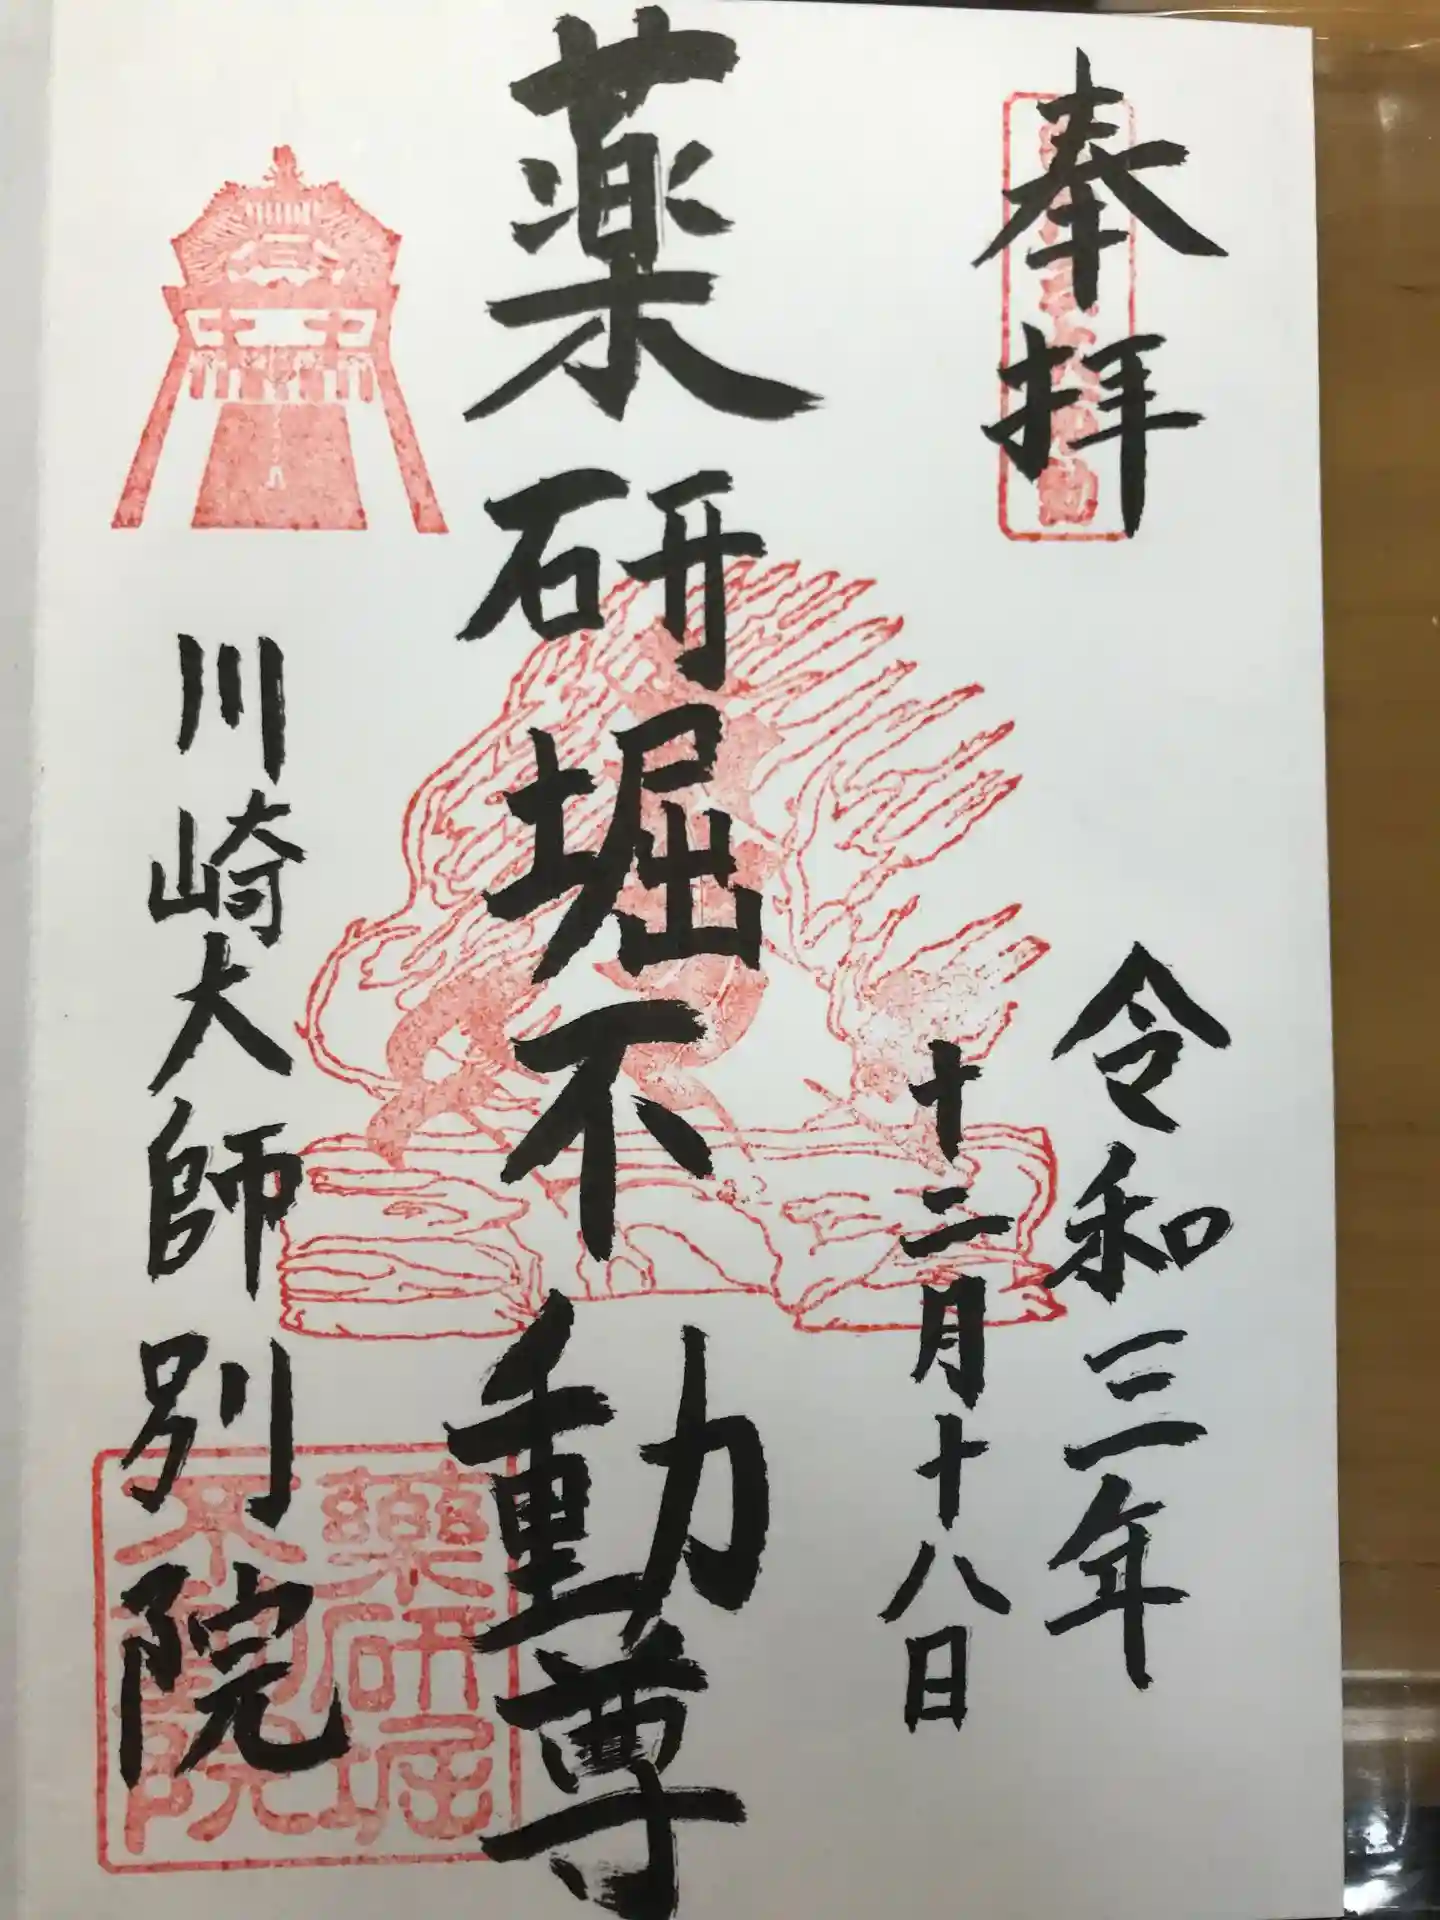 奉拝
令和三年
十二月十八日
薬研堀不動尊
川崎大師別院
薬研堀
不動院